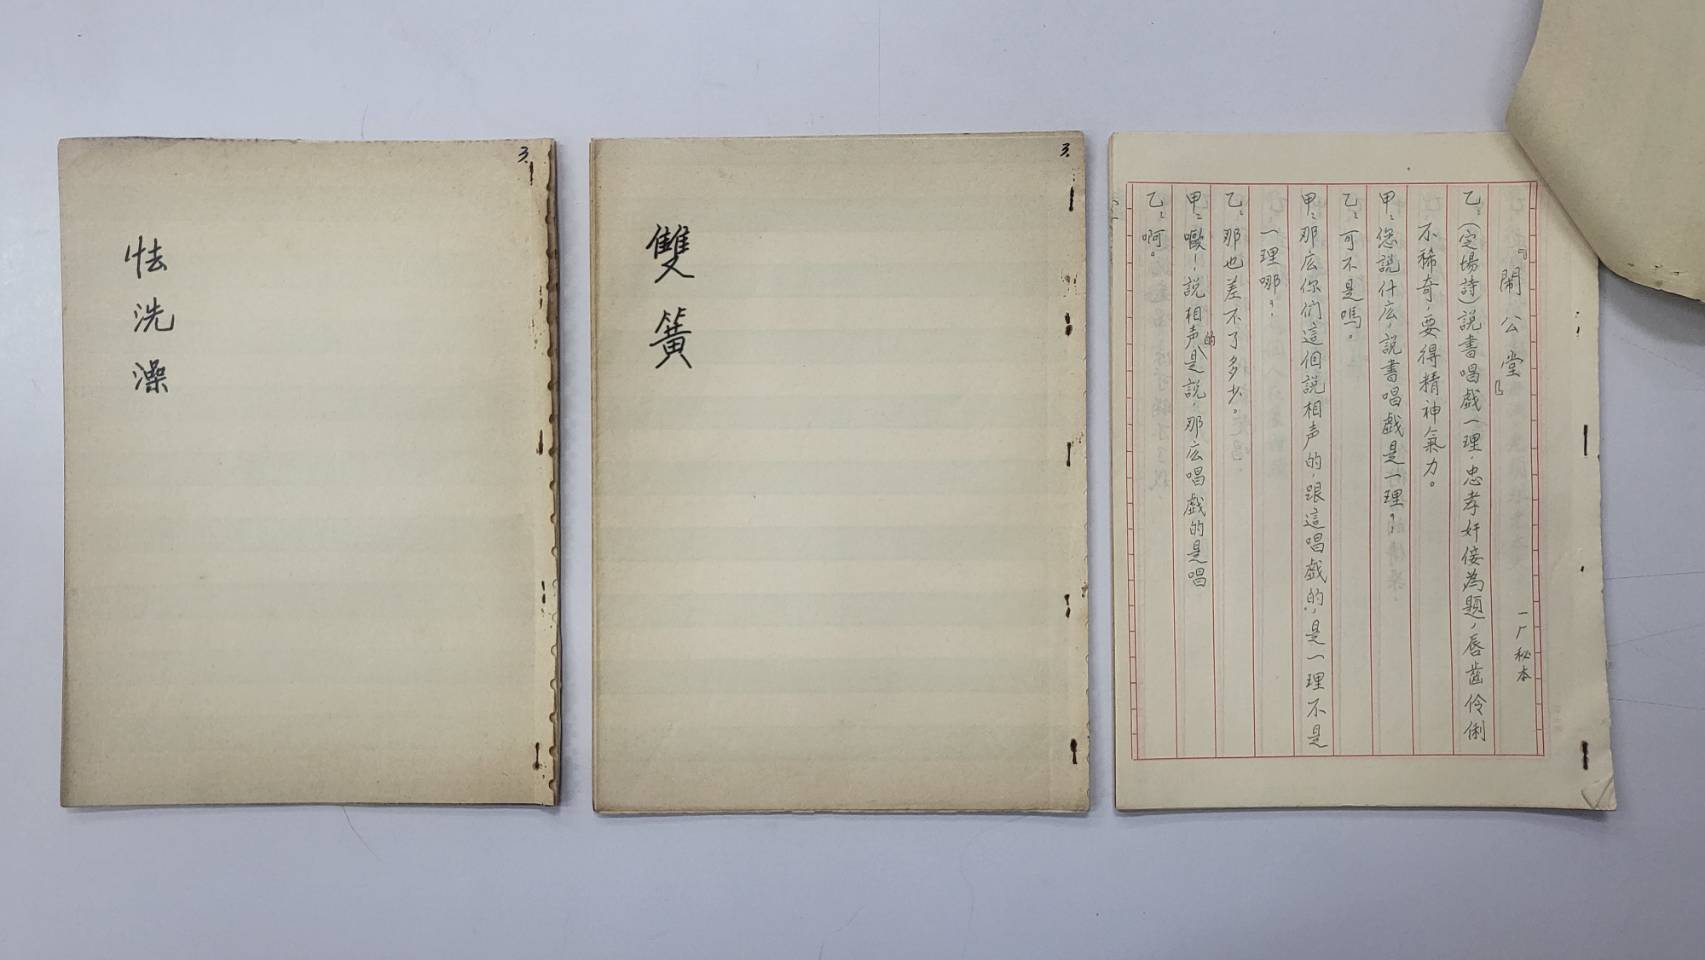 3.
怯洗澡
3.
雙簧
『鬧公堂』 一厂秘本
乙：（定場詩）說書唱戲一理，忠孝奸佞為題，唇齒伶俐
不稀奇，要得精神氣力。
甲：您說什庅，說書唱戲是一理？
乙：可不是嗎。
甲：那庅你们這個說相声的，跟這唱戲的，是一理不是
一理哪？
乙：那也差不了多少。
甲：嗷！說相声的是說，那庅唱戲的是唱
乙：啊。